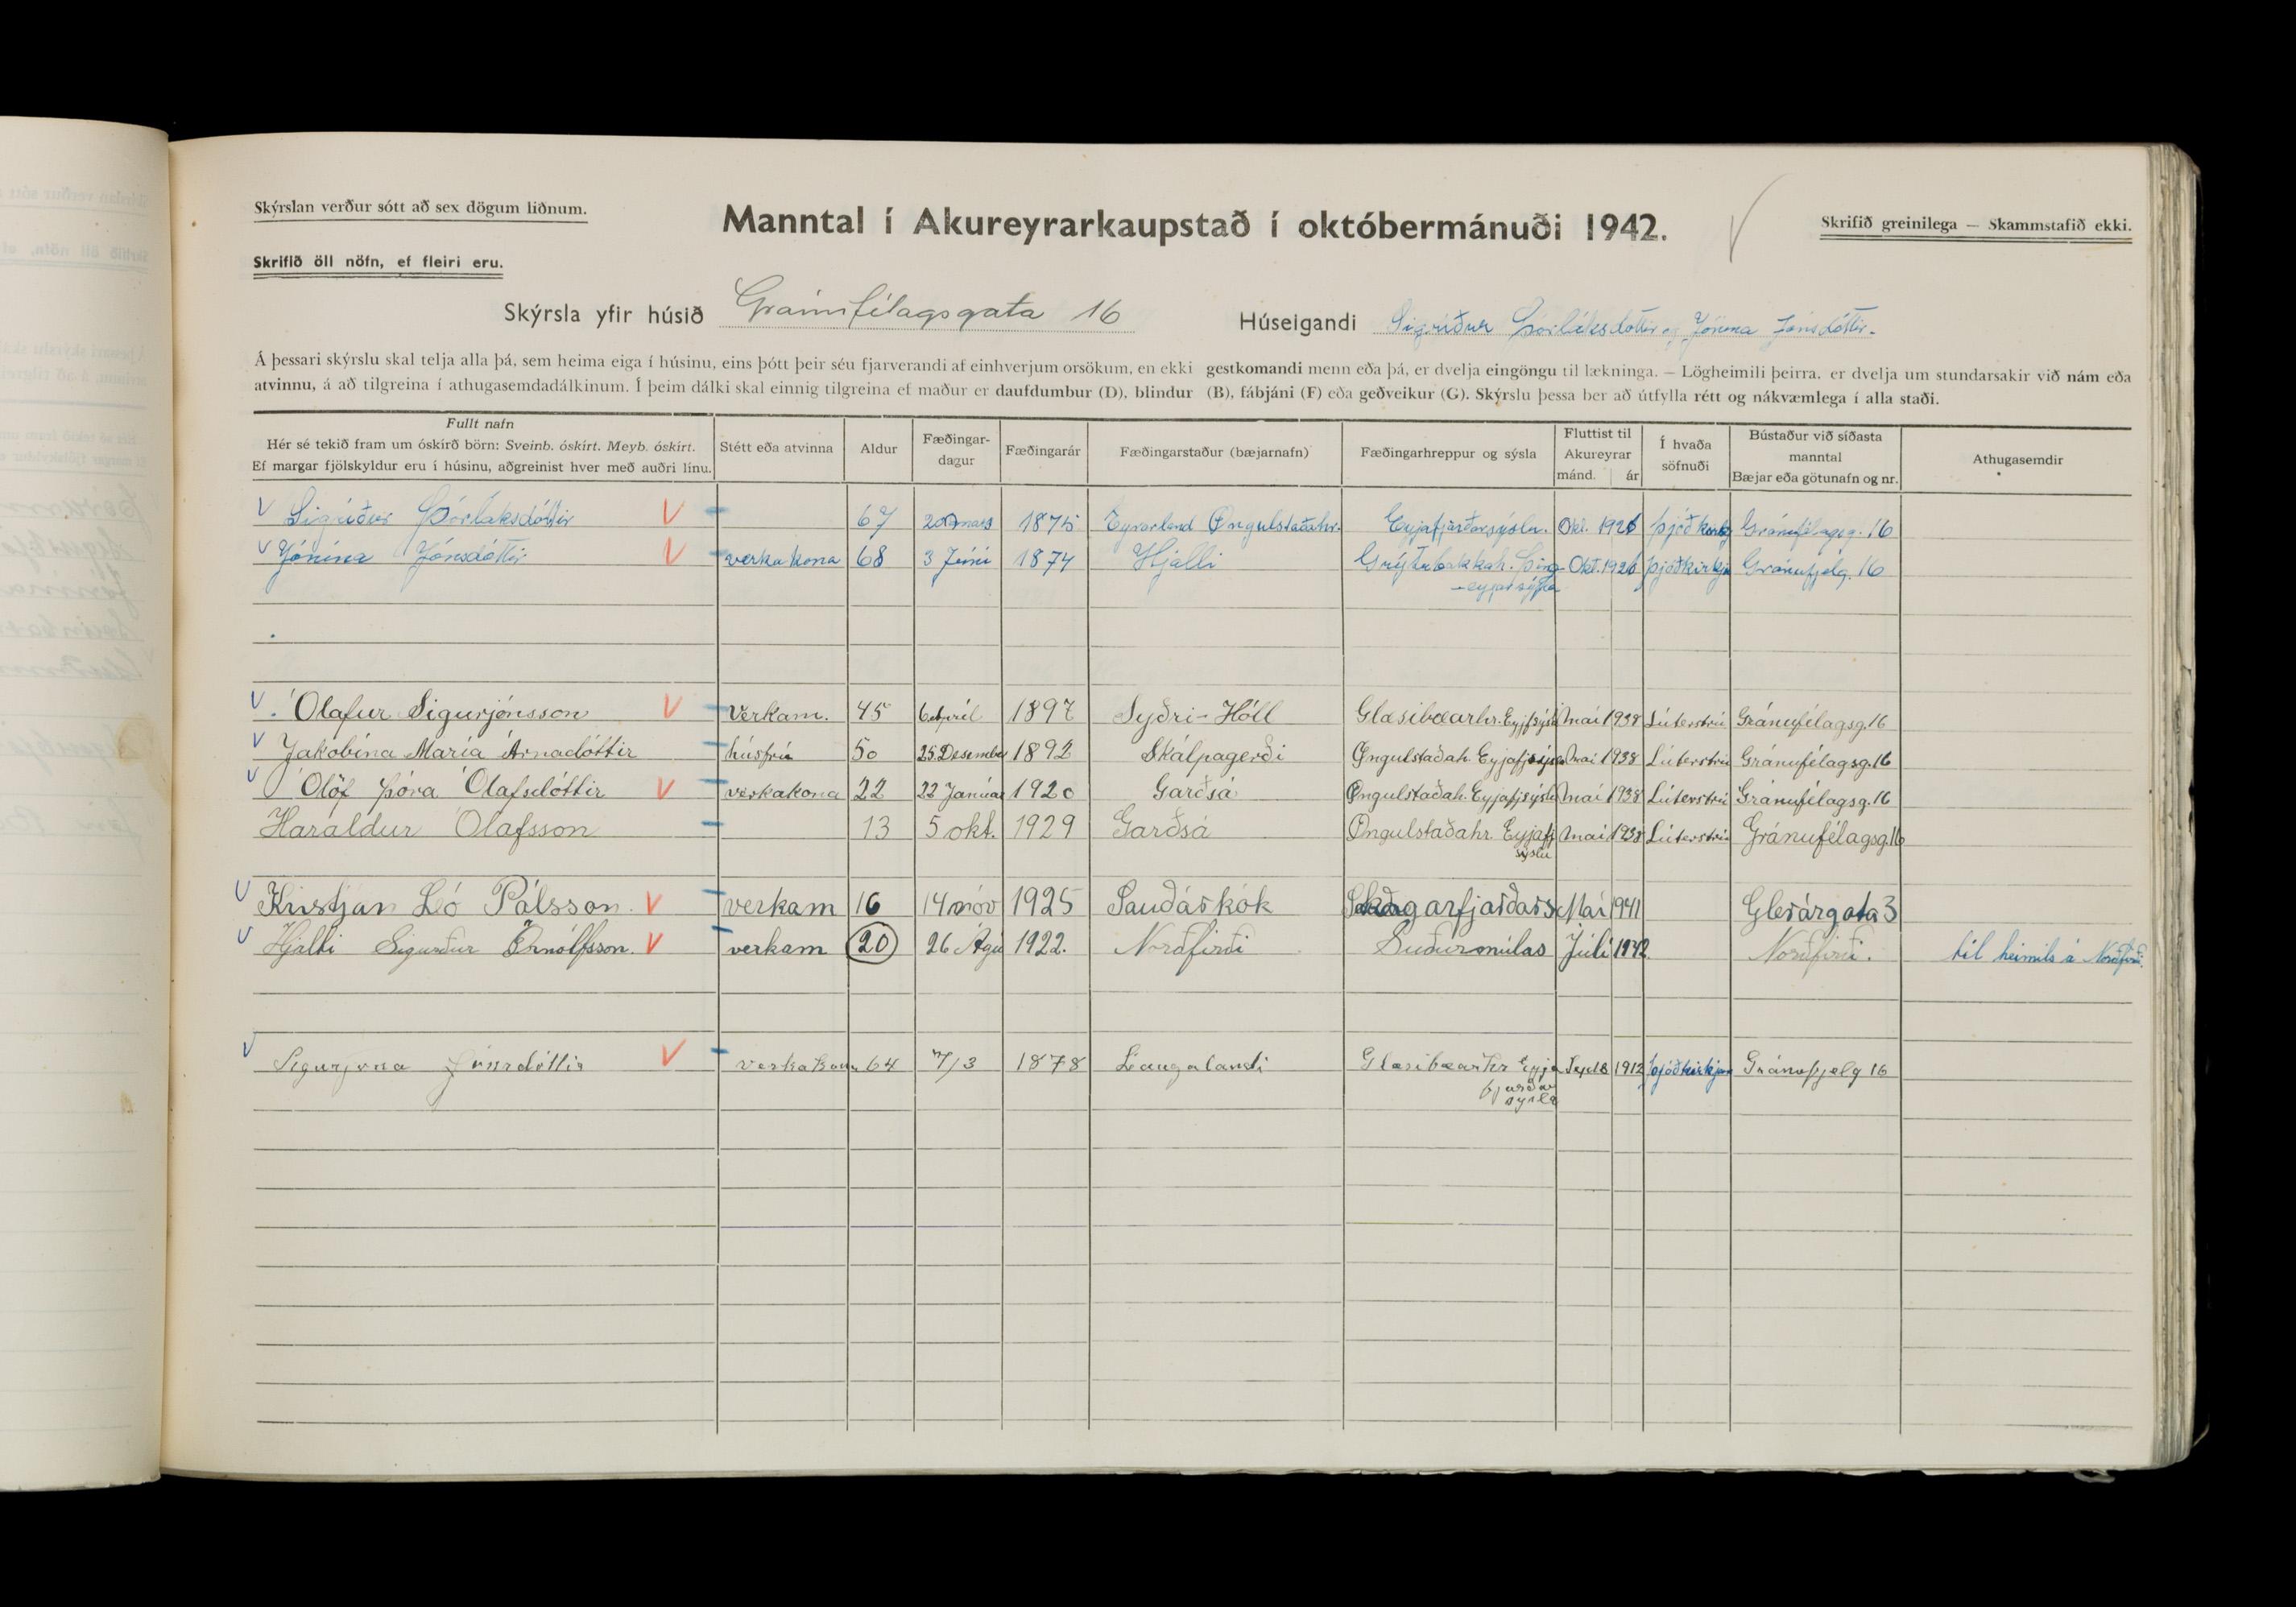 Skýrslan verður sótt að sex dögum liðnum.
Manntal í Akureyrarkaupstað í októbermánuði 1942.
Skrifið greinilega — Skammstafið ekki.
Skrifið öll nöfn, ef fleiri eru.
Skýrsla yfir húsið Gránufélagsgata 16 Húseigandi Sigríður Þorláksdóttir og Jónína Jónsdóttir.
Á þessari skýrslu skal telja alla þá, sem heima eiga í húsinu, eins þótt þeir séu fjarverandi af einhverjum orsökum, en ekki gestkomandi menn eða þá, er dvelja eingöngu til lækninga. — Lögheimili þeirra. er dvelja um stundarsakir við nám eða
atvinnu, á að tilgreina í athugasemdadálkinum. Í þeim dálki skal einnig tilgreina ef maður er daufdumbur (D), blindur (B), fábjáni (F) eða geðveikur (G). Skýrslu þessa ber að útfylla rétt og nákvæmlega í alla staði.
Fullt nafn
Hér sé tekið fram um óskírð börn: Sveinb. óskírt. Meyb. óskírt.
Ef margar fjölskyldur eru í húsinu, aðgreinist hver með auðri línu.
Stétt eða atvinna
Aldur
Fæðingar-
dagur
Fæðingarár
Fæðingarstaður (bæjarnafn)
Fæðingarhreppur og sýsla
Fluttist til
Akureyrar
mánd. ár
Í hvaða
söfnuði
Bústaður við síðasta
manntal
Bæjar eða götunafn og nr.
Athugasemdir
V Sigríður Þórláksdóttir V 67 20 mars 1875 Eyrarland Öngulstaðahr. Eyjafjarðarsýslu. Okt. 1926 Þjóðkirkj Gránufélagsg. 16
V Jónína Jónsdóttir V verkakona 68 3 Júní 1874 Hjalli Grýtubakkah. Þing- Okt. 1926 Þjóðkirkju Gránufjelg. 16
-eyjarsýslu
V Ólafur Sigurjónsson V Verkam. 45 6 apríl 1897 Syðri-Hóll Glæsibæarhr. Eyjfsýslu Mai 1938 Lúterstrú Gránufélagsg. 16
V Jakobína María Árnadóttir húsfrú 50 25 Desember 1892 Skálpagerði Öngulstaðah. Eyjafjsýslu Mai 1938 Lúterstrú Gránufélagsg. 16
V Ólöf Þóra Ólafsdóttir V verkakona 22 22 Janúar 1920 Garðsá Öngulstaðah. Eyjafjsýslu Mai 1938 Lúterstrú Gránufélagsg. 16
Haraldur Ólafsson 13 5 okt. 1929 Garðsá Öngulstaðahr. Eyjafj Mai 1938 Lúterstrú Gránufélagsg. 16
sýslu
V Kristján Leó Pálsson. V verkam 16 14 nóv 1925 Sauðárkók Skagarfjarðars Mai 1941 Glerárgata 3
V Hjalti Sigurður Örnólfsson. V verkam 20 26 Águ 1922. Norðfirði Suðurmúlas Júlí 1942 Norðfirði. til heimils á Norðfirði.
V Sigurjona Jónsdóttir V verkakona 64 7/3 1878 Laugalandi Glæsibæarhr Eyja Sept 1912 Þjóðkirkjan Gránufjelg 16
fjarðar
sýsla